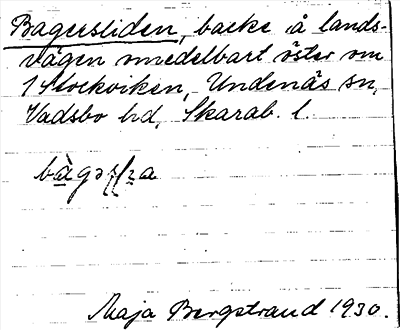 Bagersliden, backe å lands-
vägen omedelbart öster om
1 Stockviken, Undenäs sn,
Vadsbo hd, Skarab. l.
Maja Bergstrand 1930.